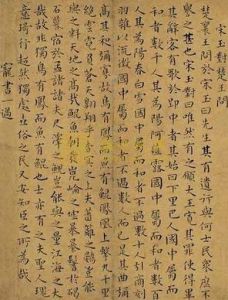 宋玉對楚王問
楚襄王問於宋玉曰先生其有遺行與何士民眾庶不
譽之甚也宋玉對曰唯然有之願大王寬其罪使得畢
其辭客有歌於郢中者其始曰下里巴人國中屬而和者數千
人其為陽阿薤露國中屬而和者數百
人其為陽春白雪國中屬而和者不過數十人引商刻
羽雜以流徵國中屬而和者不過數人而已是其曲彌
高其和彌寡故鳥有鳳而魚有鯤鳳凰上擊九千里
絕雲霓負蒼天翱翔乎杳冥之上夫藩籬之鷃豈能
與之料天地之高哉鯤魚朝發崑崙之墟暴鬐於碣
石暮宿於孟諸夫尺澤之鯢豈能與之量江海之大
哉故非獨鳥有鳳而魚有鯤也士亦有之夫聖人瑰
意琦行超然獨處世俗之民又安知臣之所為哉
寵書一過